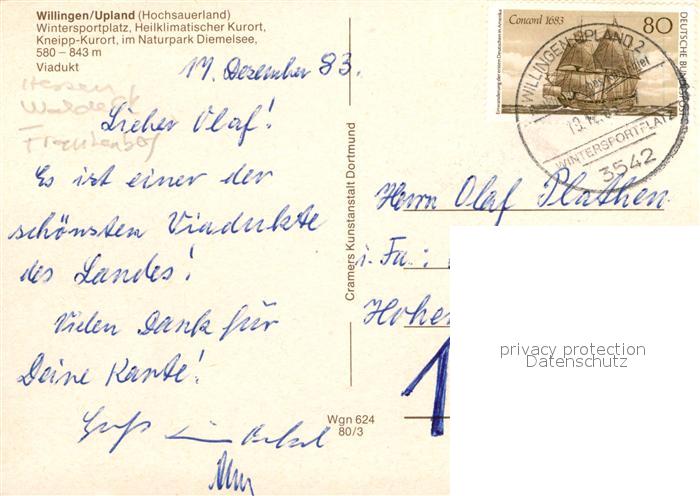 Willingen/Upland (Hochsauerland)
Wintersportplatz, Heilklimatischer Kurort,
Kneipp-Kurort, im Naturpark Diemelsee,
580 – 843 m
Viadukt
Hessen
Waldeck
Frankenberg
17. Dezember 83.
Lieber Olaf!
Es ist einer der
schönsten Viadukte
des Landes!
Vielen Dank für
Deine Karte!
Gruß
Cramers Kunstanstalt Dortmund
Wgn 624
80/3
Concord 1683
80
DEUTSCHE BUNDESPOST
Einwanderung der ersten Deutschen in Amerika
WILLINGEN, UPLAND 2
WINTERSPORTPLATZ
3542
Herrn Olaf Plathen
i. Fa.:
1
privacy protection
Datenschutz